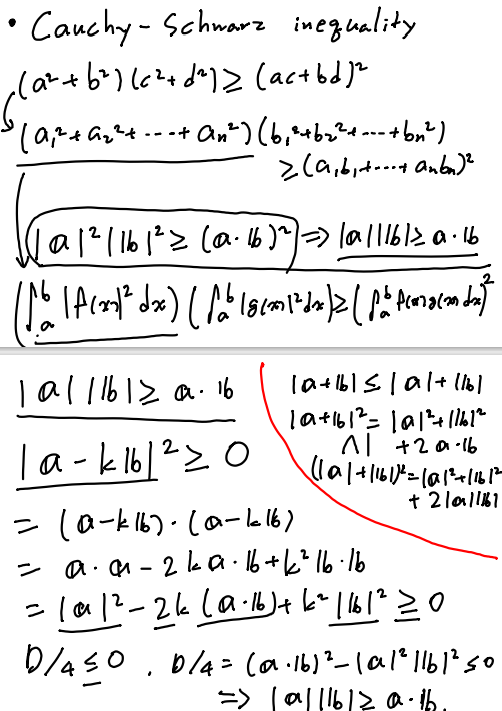 • Cauchy-Schwarz inequality
(a²+b²)(c²+d²) ≥ (ac+bd)²
(a₁²+a₂²+---+aₙ²)(b₁²+b₂²+---+bₙ²)
≥(a₁b₁+---+aₙbₙ)²
|𝕒|²|𝕓|² ≥ (𝕒·𝕓)² ⇒ |𝕒||𝕓| ≥ 𝕒·𝕓
(∫ₐᵇ |f(x)|² dx)(∫ₐᵇ |g(x)|²dx) ≥ (∫ₐᵇ f(x)g(x)dx)²
|𝕒||𝕓| ≥ 𝕒·𝕓
|𝕒-k𝕓|² ≥ 0
= (𝕒-k𝕓)·(𝕒-k𝕓)
= 𝕒·𝕒-2k𝕒·𝕓+k²𝕓·𝕓
= |𝕒|²-2k(𝕒·𝕓)+k²|𝕓|² ≥ 0
D/4 ≤ 0 . D/4 = (𝕒·𝕓)²-|𝕒|²|𝕓|² ≤ 0
⇒ |𝕒||𝕓| ≥ 𝕒·𝕓.
|𝕒+𝕓| ≤ |𝕒|+|𝕓|
|𝕒+𝕓|² = |𝕒|²+|𝕓|²
∧| +2𝕒·𝕓
(|𝕒|+|𝕓|)² = |𝕒|²+|𝕓|²
+2|𝕒||𝕓|